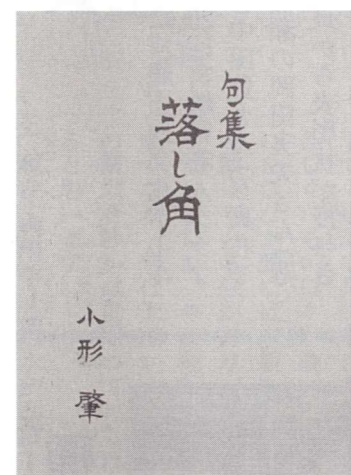 句集
落し角
小形 肇